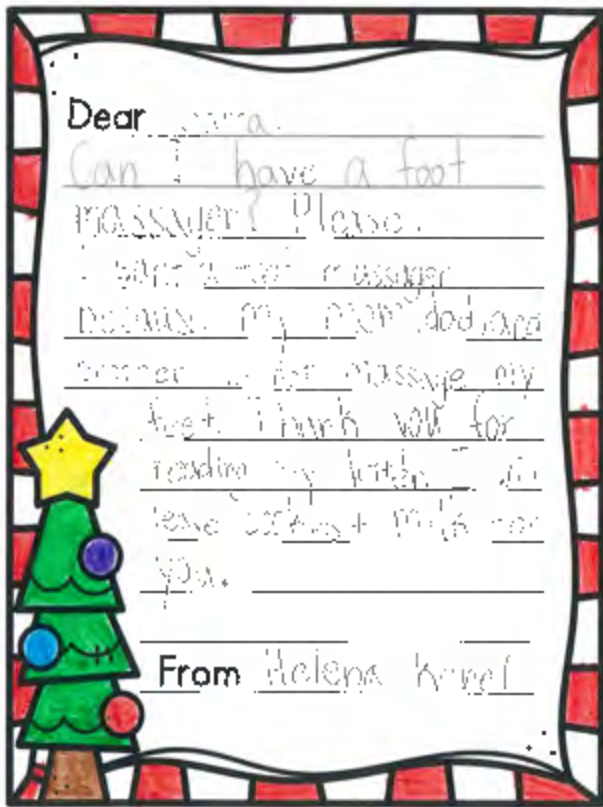 Dear
Can I have a foot
massager? Please.
I want a foot massager
because my mom, dad, and
massage my
feet. Thank you for
reading my letter. I
leave cookies + milk for
you.
From Helena